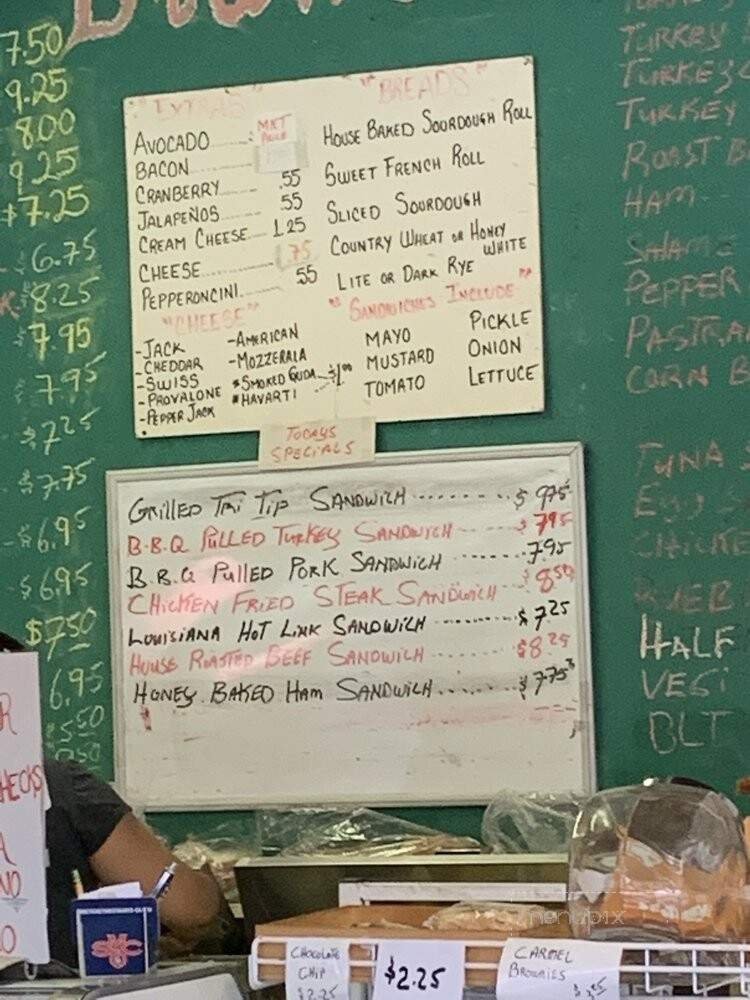 7.50
9.25
8.00
9.25
$7.25
6.75
8.25
7.95
7.95
$7.25
$7.75
$6.95
$6.95
$7.50
6.95
5.50
"EXTRAS"
AVOCADO
BACON
CRANBERRY .55
JALAPEÑOS .55
CREAM CHEESE 1.25
CHEESE .75
PEPPERONCINI .55
"CHEESE"
-JACK
-CHEDDAR
-SWISS
-PROVALONE
-PEPPER JACK
-AMERICAN
-MOZZERALA
*SMOKED GUDA
*HAVARTI
$1.00
"BREADS"
HOUSE BAKED SOURDOUGH ROLL
SWEET FRENCH ROLL
SLICED SOURDOUGH
COUNTRY WHEAT OR HONEY
WHITE
LITE OR DARK RYE
"SANDWICHES INCLUDE"
MAYO
MUSTARD
TOMATO
PICKLE
ONION
LETTUCE
TODAYS
SPECIALS
GRILLED TRI TIP SANDWICH $9.75
B.B.Q PULLED TURKEY SANDWICH $7.95
B.B.Q PULLED PORK SANDWICH 7.95
CHICKEN FRIED STEAK SANDWICH $8.50
LOUISIANA HOT LINK SANDWICH $7.25
HOUSE ROASTED BEEF SANDWICH $8.25
HONEY BAKED HAM SANDWICH $7.75
TURKEY
TURKEY
TURKEY
ROAST
HAM
PEPPER
PASTRA
CORN B
TUNA
HALF
VEGI
BLT
CHOCOLATE
CHIP
$2.25
$2.25
CARMEL
BROWNIES
menupix